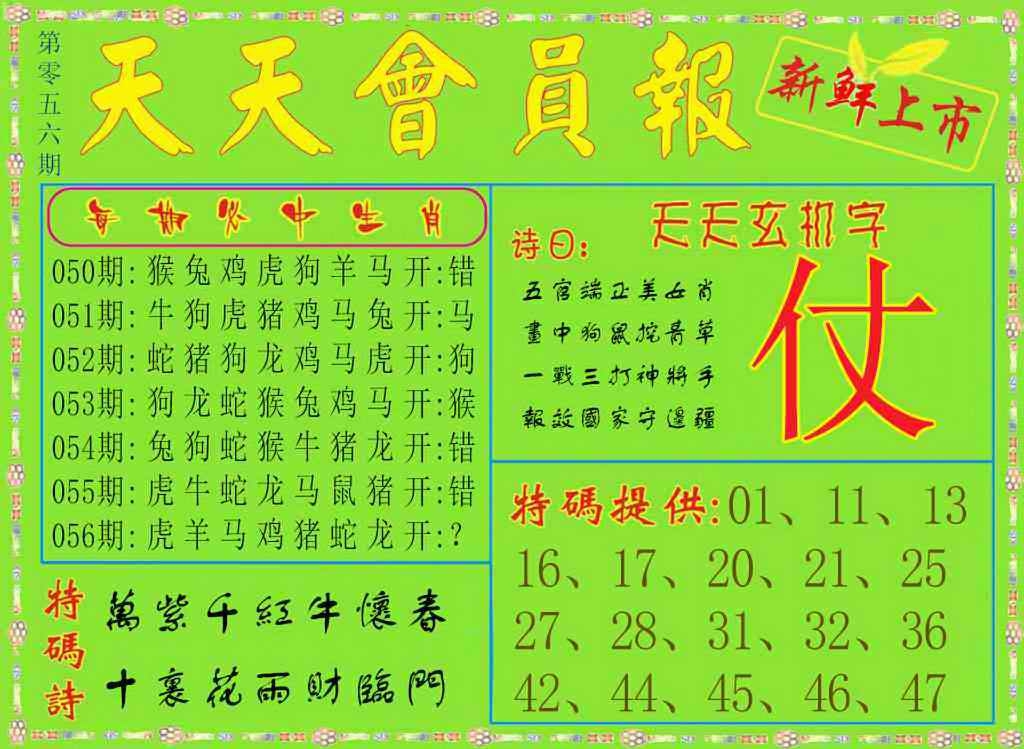 第零五六期
天天會員報
新鮮上市
每期必中生肖
050期: 猴兔鸡虎狗羊马开:错
051期: 牛狗虎猪鸡马兔开:马
052期: 蛇猪狗龙鸡马虎开:狗
053期: 狗龙蛇猴兔鸡马开:猴
054期: 兔狗蛇猴牛猪龙开:错
055期: 虎牛蛇龙马鼠猪开:错
056期: 虎羊马鸡猪蛇龙开:?
天天玄机字
诗曰:
五官端正美女肖
畫中狗鼠挖青草
一戰三打神將手
報效國家守邊疆
仗
特碼提供:01、11、13
16、17、20、21、25
27、28、31、32、36
42、44、45、46、47
特碼詩
萬紫千紅牛懷春
十裏花雨財臨門